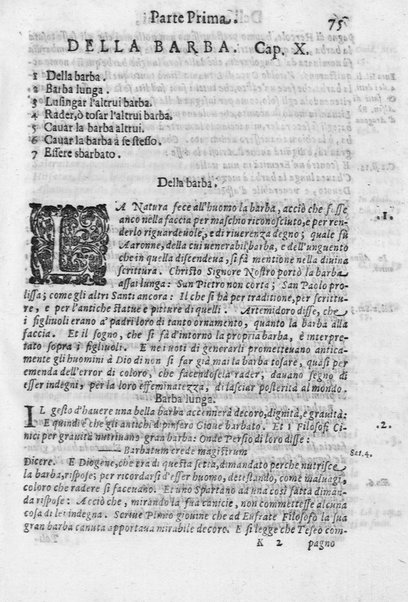 Parte Prima. 75
DELLA BARBA. Cap. X.
1 Della barba.
2 Barba lunga.
3 Lusingar l'altrui barba.
4 Rader, ò tosar l'altrui barba.
5 Cauar la barba altrui.
6 Cauar la barba à se stesso.
7 Essere sbarbato.
Della barba.
LA Natura fece all'huomo la barba, acciò che fosse .1.
anco nella faccia per maschio riconosciuto, e per ren-
derlo riguardeuole, e di riuerenza degno; quale fù
Aaronne, della cui venerabil barba, e dell'unguento
che in quella discendeua, si fà mentione nella diuina
scrittura. Christo Signore Nostro portò la barba
assai lunga: San Pietro non corta; San Paolo pro
lissa; come gli altri Santi ancora: Il che si hà per traditione, per scrittu-
re, e per l'antiche statue e pitture di quelli. Artemidoro disse, che
i figliuoli erano a' padri loro di tanto ornamento, quanto la barba alla
faccia. Et il sogno, che si fà d'intorno la propria barba, è interpre-
tato sopra i figliuoli. E ne' voti di generarli prometteuano antica-
mente gli huomini à Dio di non si far già mai la barba tosare, quasi per
emenda dell'error di coloro, che facendosela rader, dauano segno di
esser indegni, per la loro effeminatezza, di lasciar posterità al mondo.
Barba lunga.
IL gesto d'hauere una bella barba accennerà decoro, dignità, e grauità: .2.
E quindi è che gli antichi dipinsero Gioue barbato. Et i Filosofi Ci
nici per grauità nutriuano gran barba: Onde Persio di loro disse:
Barbatum crede magistrum Sat.4.
Dicere. E Diogene, che era di questa setta, dimandato perche nutrisce
la barba, rispose; per ricordarsi d'esser huomo, detestando, come maluagi,
coloro che radere si faceuano. Et uno Spartano ad una così fatta diman-
da rispose: Acciò che, mirando la sua canicie, non commettesse alcuna
cosa di lei indegna. Scriue Plinio giouine che ad Eufrate Filosofo la sua
gran barba canuta apportaua mirabile decoro. E si legge che Teseo com-
K 2 pagno